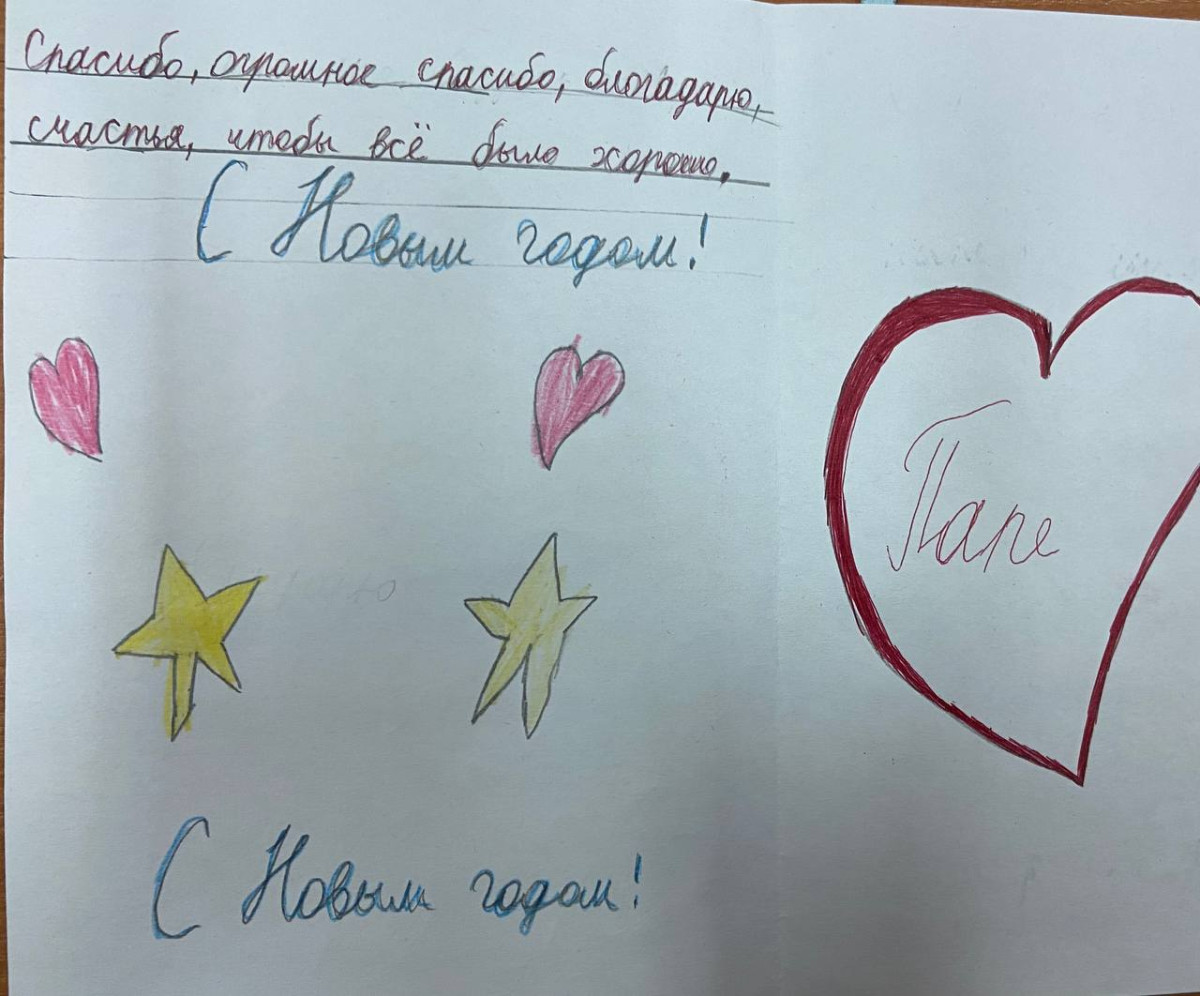 Спасибо, огромное спасибо, благадарю,
счастья, чтобы всё было хорошо.
С Новым годом!
Папе
С Новым годом!